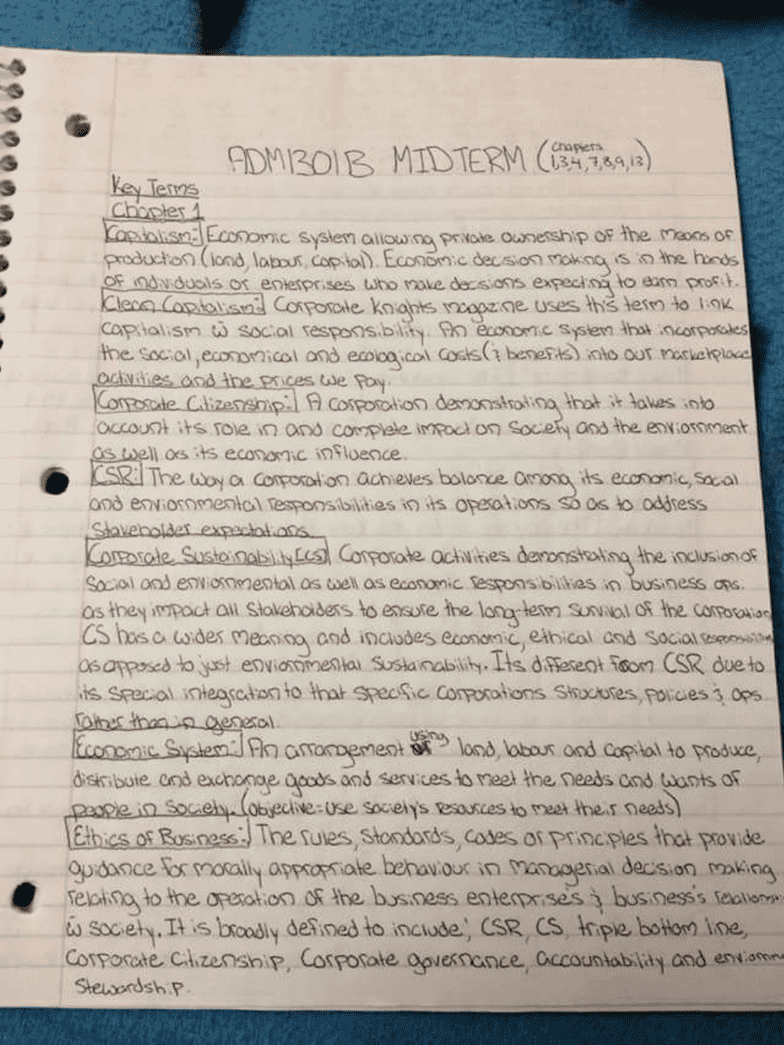 ADM1301B MIDTERM (Chapters 1,3,4,7,8,9,13)
Key Terms
Chapter 1
Capitalism: Economic system allowing private ownership of the means of
production (land, labour, capital). Economic decision making is in the hands
of individuals or enterprises who make decisions expecting to earn profit.
Clean Capitalism: Corporate Knights magazine uses this term to link
capitalism w social responsibility. An economic system that incorporates
the social, economical and ecological costs (& benefits) into our marketplace
activities and the prices we pay.
Corporate Citizenship: A corporation demonstrating that it takes into
account its role in and complete impact on society and the enviornment
as well as its economic influence.
CSR: The way a corporation achieves balance among its economic, social
and enviornmental responsibilities in its operations so as to address
Stakeholder expectations.
Corporate Sustainability (CS) Corporate activities demonstrating the inclusion of
Social and enviornmental as well as economic responsibilities in business ops.
as they impact all stakeholders to ensure the long-term survival of the corporation
CS has a wider meaning and includes economic, ethical and social
as opposed to just enviornmental sustainability. Its different from CSR due to
its special integration to that specific corporations structures, policies & ops
rather than in general
Economic System: An arrangement using land, labour and capital to produce,
distribute and exchange goods and services to meet the needs and wants of
people in society. (objective=use society's resources to meet their needs)
Ethics of Business: The rules, standards, codes or principles that provide
guidance for morally appropriate behaviour in managerial decision making
relating to the operation of the business enterprises & business's
w society. It is broadly defined to include; CSR, CS, triple bottom line,
Corporate Citizenship, Corporate governance, accountability and
Stewardship.